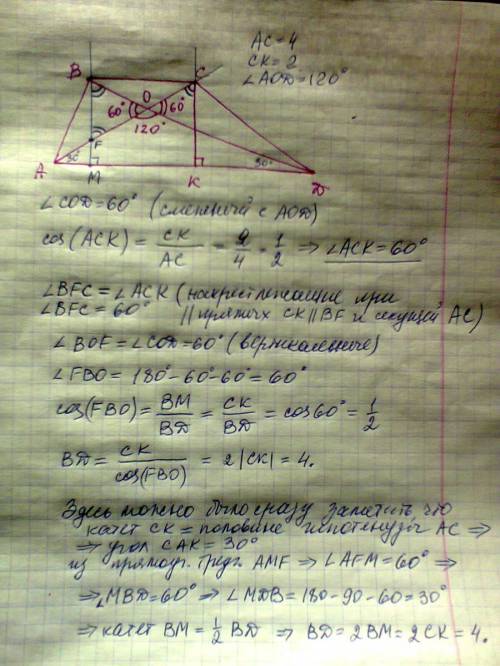 AC=4
CK=2
∠AOD=120°
B
C
O
60°
60°
120°
F
A
30°
30°
M
K
D
∠COD=60° (смежный с AOD)
cos(ACK) = CK/AC = 2/4 = 1/2 ⇒ ∠ACK=60°
∠BFC = ∠ACK (накрестлежащие при
∠BFC = 60° ||прямых CK||BF и секущей AC)
∠BOF=∠COD=60° (вертикальные)
∠FBO = 180°-60°-60° = 60°
cos(FBO) = BM/BD = CK/BD = cos60° = 1/2
BD = CK/cos(FBO) = 2|CK| = 4.
Здесь можно было сразу заметить что
катет CK = половине гипотенузы AC ⇒
⇒ угол CAK = 30°
из прямоуг. треуг. AMF ⇒ ∠AFM=60° ⇒
⇒ ∠MBD=60° ⇒ ∠MDB = 180-90-60=30°
⇒ катет BM = 1/2 BD ⇒ BD=2BM=2CK=4.